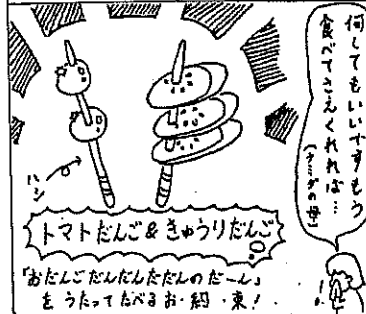 何してもいいですもう
食べてさえくれれば…
(タミダの母)
ハシ
トマトだんご&きゅうりだんご
「おだんごだんだんただんのだーん」
をうたってたべるお・約・束!